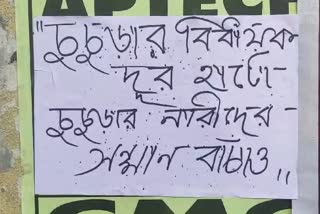 APTECH
"চুচুড়ার বিধায়ক
দূর হাটো-
চুচুড়ার নারীদের-
সম্মান বাঁচাও,,